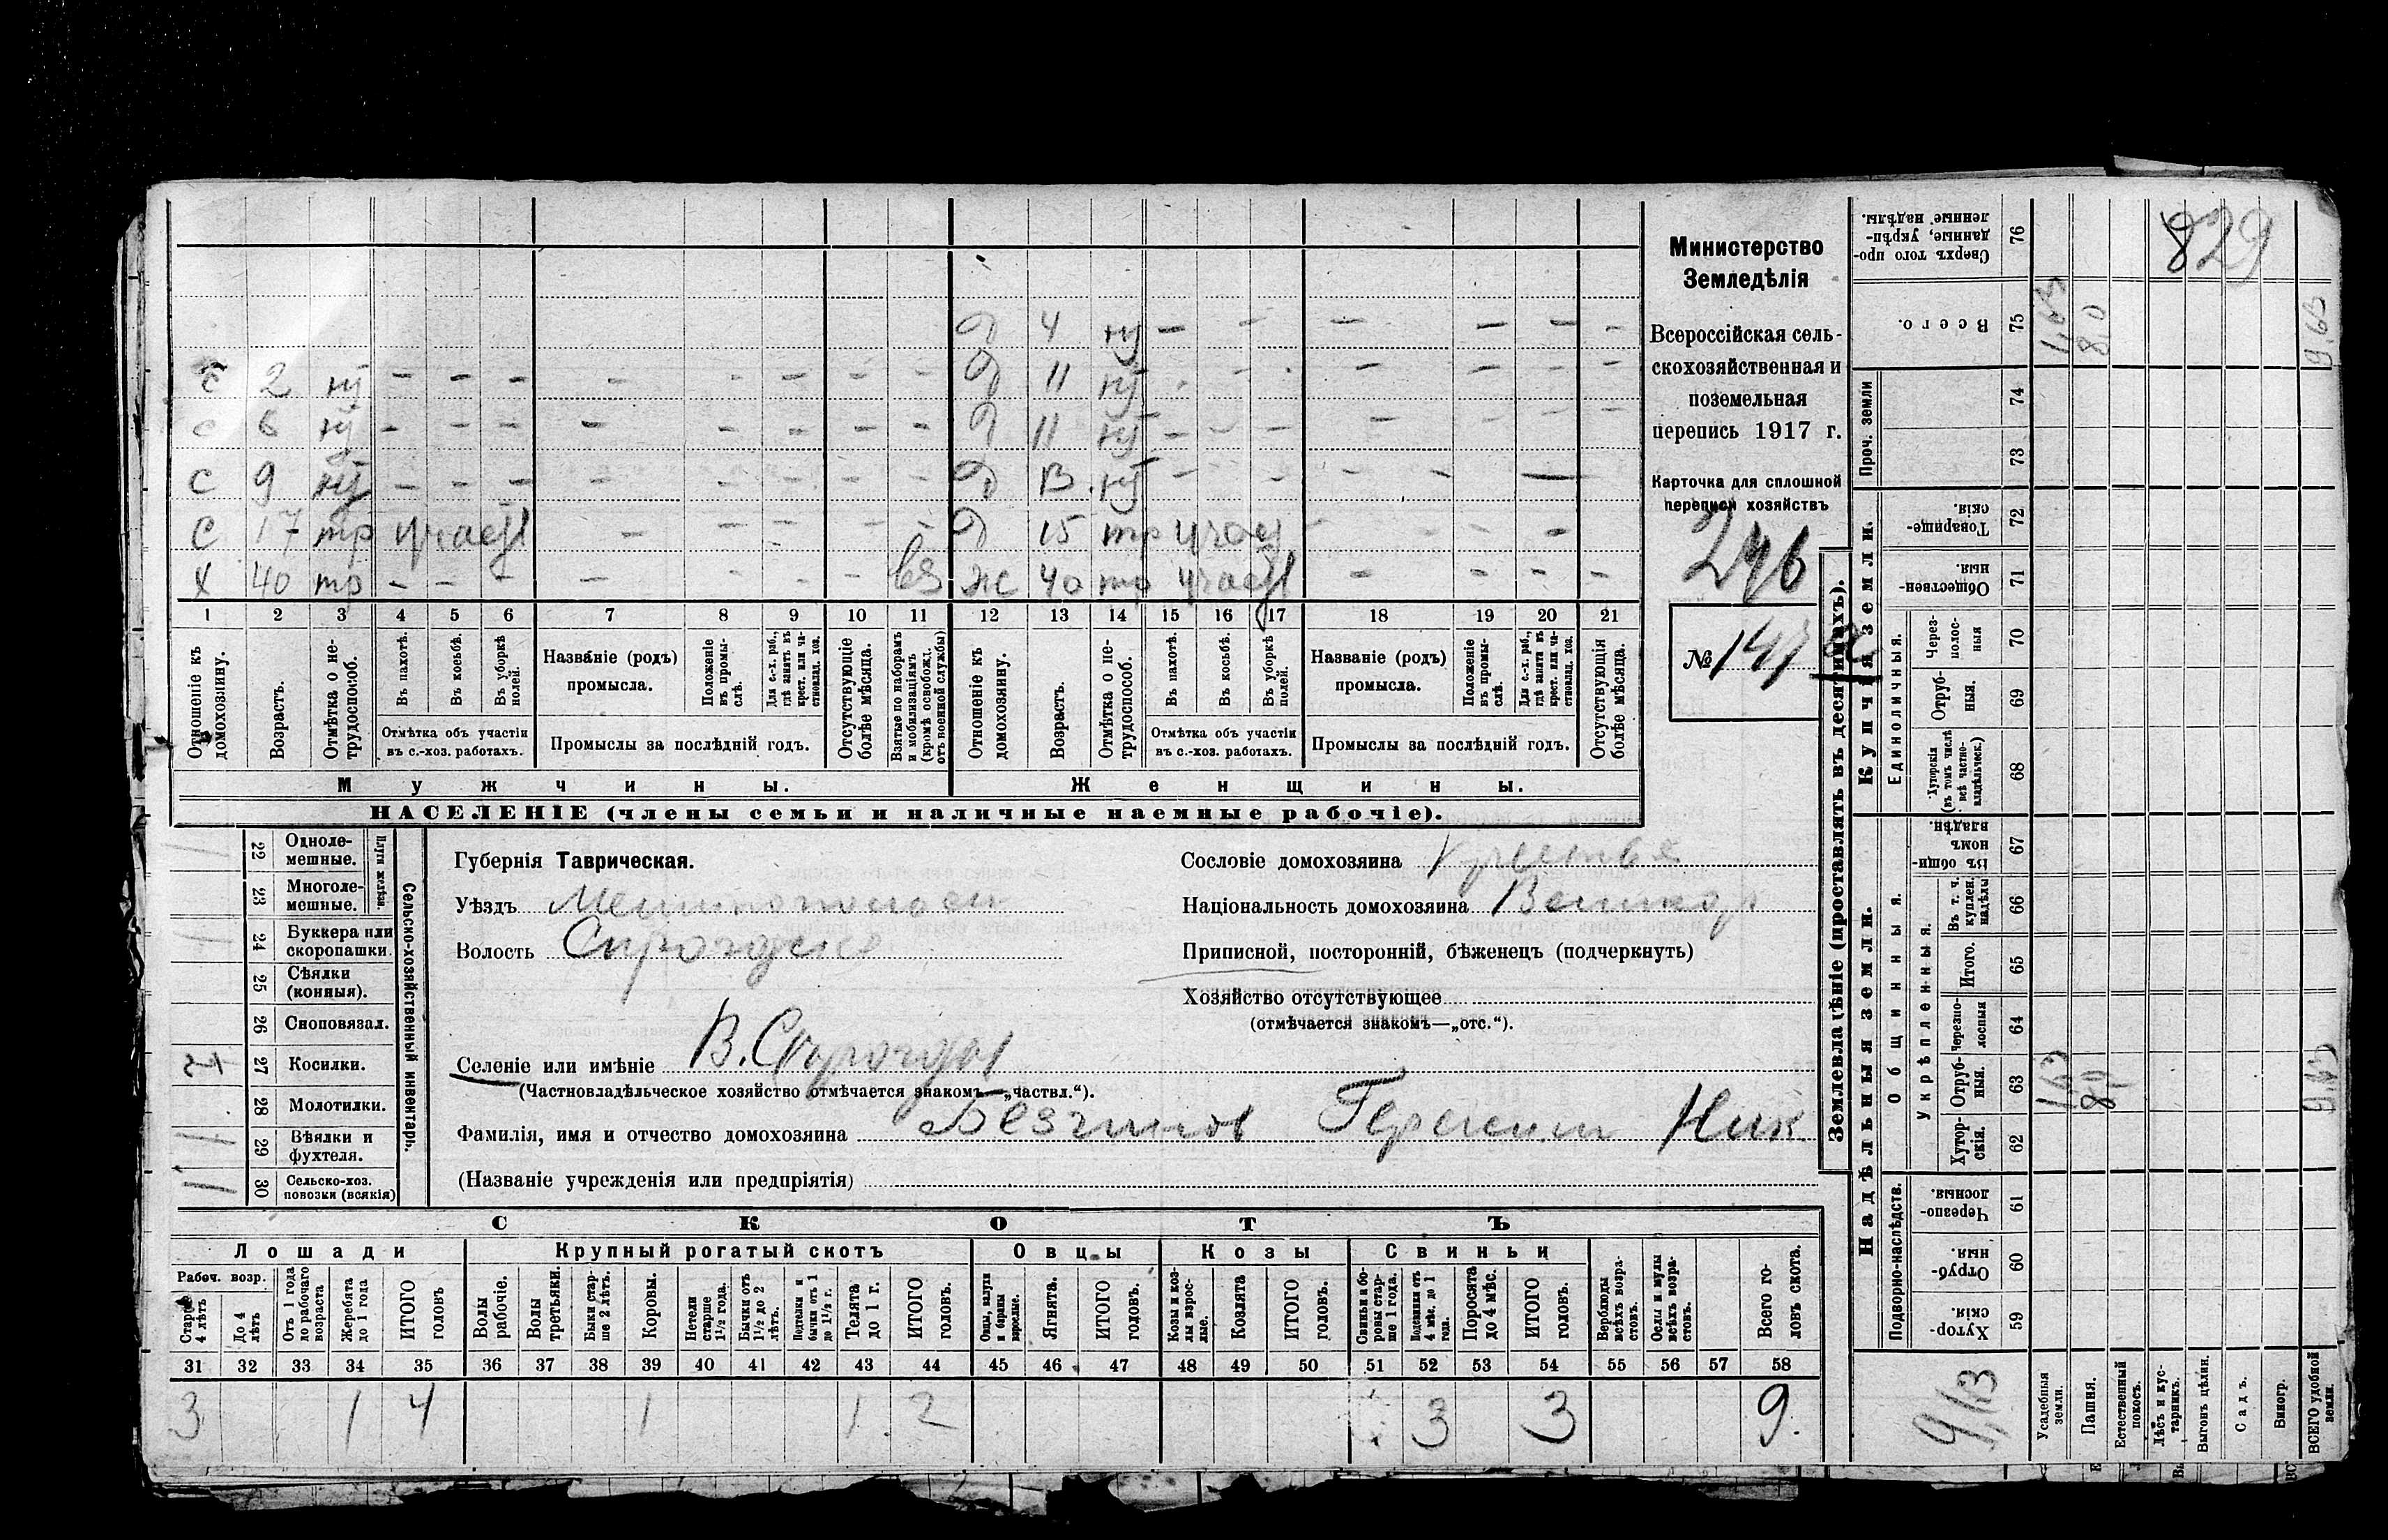 829
Министерство
Земледѣлія
Всероссійская сель-
скохозяйственная и
поземельная
перепись 1917 г.
Карточка для сплошной
переписи хозяйствъ
246
№ 147 а
д 4 нт — — — — — —
с 2 нт — — — — — — — — д 11 нт — — — — — —
с 6 нт — — — — — — — — д 11 нт — — — — — —
с 9 нт — — — — — — — — д 13 нт — — — — —
с 17 тр участ — — — — — д 15 тр учас — — — —
х 40 тр — — — — — — — вз ж 40 тр участ — — — —
1 2 3 4 5 6 7 8 9 10 11 12 13 14 15 16 17 18 19 20 21
Отношеніе къ домохозяину.
Возрастъ.
Отмѣтка о не-трудоспособ.
Въ пахотѣ.
Въ косьбѣ.
Въ уборкѣ полей.
Отмѣтка объ участіи
въ с.-хоз. работахъ.
Названіе (родъ)
промысла.
Положеніе въ промы-слѣ.
Для с.-х. раб., гдѣ занятъ въ крест. или ча-стновлад. хоз.
Промыслы за послѣдній годъ.
Отсутствующіе болѣе мѣсяца.
Взятые по наборамъ и мобилизаціямъ (кромѣ освобожд. отъ военной службы)
Отношеніе къ домохозяину.
Возрастъ.
Отмѣтка о не-трудоспособ.
Въ пахотѣ.
Въ косьбѣ.
Въ уборкѣ полей.
Отмѣтка объ участіи
въ с.-хоз. работахъ.
Названіе (родъ)
промысла.
Положеніе въ промы-слѣ.
Для с.-х. раб., гдѣ занята въ крест. или ча-стновлад. хоз.
Промыслы за послѣдній годъ.
Отсутствующія болѣе мѣсяца.
Мужчины. Женщины.
НАСЕЛЕНІЕ (члены семьи и наличные наемные рабочіе).
Сельско-хозяйственный инвентарь.
Плуги желѣз.
1 22 Одноле-мешные.
23 Многоле-мешные.
1 24 Буккера или скоропашки.
25 Сѣялки (конныя).
26 Сноповязал.
27 Косилки.
28 Молотилки.
1 29 Вѣялки и фухтеля.
1 30 Сельско-хоз. повозки (всякія)
Губернія Таврическая.
Уѣздъ Мелитопольск
Волость Сирогозско
Селеніе или имѣніе В. Сирогозы
(Частновладѣльческое хозяйство отмѣчается знакомъ—„частвл.“).
Фамилія, имя и отчество домохозяина Безчинов Герасим Ник
(Названіе учрежденія или предпріятія)
Сословіе домохозяина крестья
Національность домохозяина Великор
Приписной, посторонній, бѣженецъ (подчеркнуть)
Хозяйство отсутствующее
(отмѣчается знакомъ—„отс.“).
СКОТЪ
Лошади Крупный рогатый скотъ Овцы Козы Свиньи
Рабоч. возр.
Старше 4 лѣтъ
До 4 лѣтъ
Отъ 1 года до рабочаго возраста
Жеребята до 1 года
ИТОГО головъ
Волы рабочіе.
Волы третьяки.
Быки стар-ше 2 лѣтъ.
Коровы.
Нетели старше 1½ года.
Бычки отъ 1½ до 2 лѣтъ.
Подтелки и бычки отъ 1 до 1½ г.
Телята до 1 г.
ИТОГО головъ.
Овцы, валухи и бараны взрослые.
Ягнята.
ИТОГО головъ.
Козы и коз-лы взрос-лые.
Козлята
ИТОГО головъ.
Свиньи и бо-ровы стар-ше 1 года.
Подсвинки отъ 4 мѣс. до 1 года.
Поросята до 4 мѣс.
ИТОГО головъ.
Верблюды всѣхъ возра-стовъ.
Ослы и мулы всѣхъ возра-стовъ.
Всего го-ловъ скота.
31 32 33 34 35 36 37 38 39 40 41 42 43 44 45 46 47 48 49 50 51 52 53 54 55 56 57 58
3 1 4 1 1 2 3 3 9.
Землевладѣніе (проставлять въ десятинахъ).
Надѣльныя земли. Купчія земли. Проч. земли
Подворно-наслѣдств. Общинныя. Укрѣпленныя. Единоличныя.
76 Сверхъ того про-данные, укрѣп-ленные надѣлы.
75 Всего. 1,63 8,0 9,63
74
73
72 Товарище-скія.
71 Обществен-ныя.
70 Через-полос-ныя
69 Отруб-ныя.
68 Хуторскія (въ томъ числѣ всѣ частно-владѣльческ.)
67 Въ общин-номъ владѣн.
66 Въ т. ч. куплен. надѣлы
65 Итого.
64 Черезпо-лосныя
63 Отруб-ныя. 1,63 8,0 9,63
62 Хутор-скія.
61 Черезпо-лосныя.
60 Отруб-ныя.
59 Хутор-скія.
Усадебныя земли.
Пашня.
Естественный покосъ.
Лѣсъ и кус-тарникъ.
Выгонъ цѣлин.
Садъ.
Виногр.
ВСЕГО удобной земли.